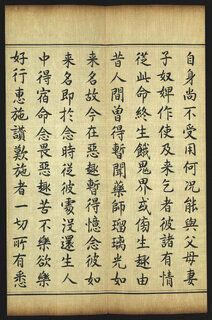 自身尚不受用何況能與父母妻
子奴婢作使及来乞者彼諸有情
從此命終生餓鬼界或傍生趣由
昔人間曾得暫聞藥師瑠璃光如
来名故今在惡趣暫得憶念彼如
来名即於念時從彼處沒還生人
中得宿命念畏惡趣苦不樂欲樂
好行惠施讃歎施者一切所有悉